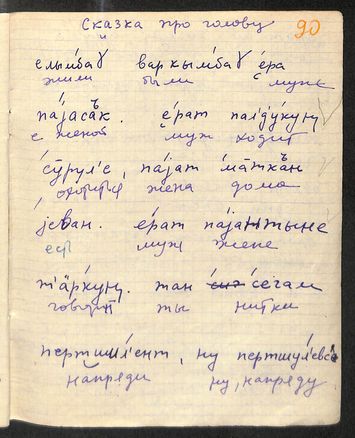 Сказка про голову
90
елы́мбаɣ варкы́мбаɣ е́ра
жили были мужь
па́јасак. е́рат палду́кун̡
с женой муж ходит
сӯруле, па́јат ма́ткъ̄н
охотиться жена дома
је́ван. е́рат паја́нтыне
есть муж жене
т'а̄ркун̡. тан се́чам
говорит ты нитки
пертшы́лент, ну пертшуле́все
напряди ну, напряду